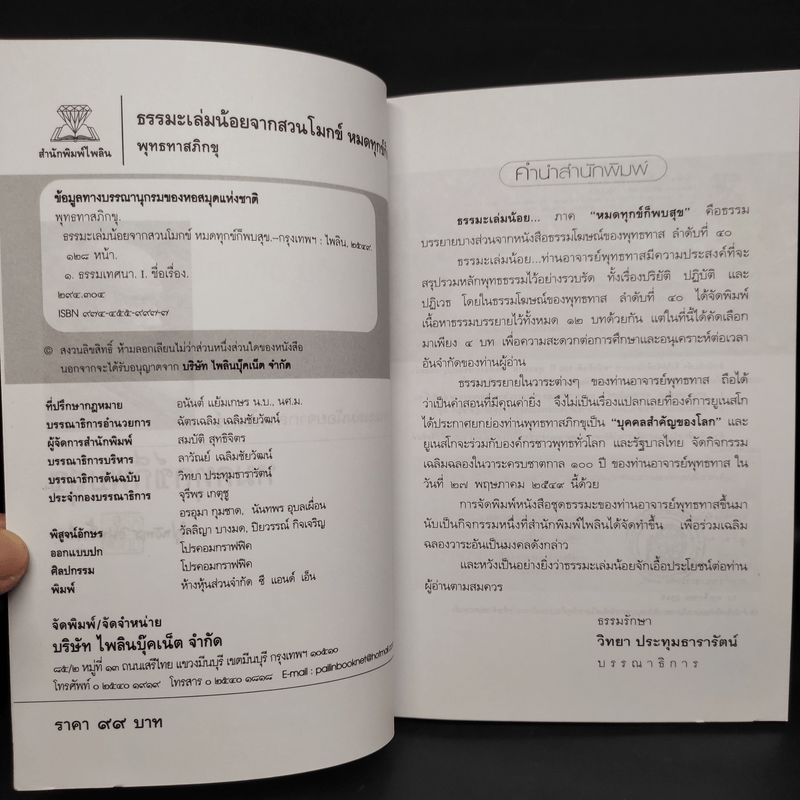 สำนักพิมพ์ไพลิน
ธรรมะเล่มน้อยจากสวนโมกข์ หมดทุกข์ก็
พุทธทาสภิกขุ
ข้อมูลทางบรรณานุกรมของหอสมุดแห่งชาติ
พุทธทาสภิกขุ.
ธรรมะเล่มน้อยจากสวนโมกข์ หมดทุกข์ก็พบสุข.--กรุงเทพฯ : ไพลิน, ๒๕๔๙.
๑๒๘ หน้า.
๑. ธรรมเทศนา. I. ชื่อเรื่อง.
๒๙๔.๓๐๔
ISBN ๙๗๔-๔๕๕-๙๙๗-๗
© สงวนลิขสิทธิ์ ห้ามลอกเลียนไม่ว่าส่วนหนึ่งส่วนใดของหนังสือ
นอกจากจะได้รับอนุญาตจาก บริษัท ไพลินบุ๊คเน็ต จำกัด
ที่ปรึกษากฎหมาย อนันต์ แย้มเกษร น.บ., นศ.ม.
บรรณาธิการอำนวยการ ฉัตรเฉลิม เฉลิมชัยวัฒน์
ผู้จัดการสำนักพิมพ์ สมบัติ สุทธิจิตร
บรรณาธิการบริหาร ลาวัณย์ เฉลิมชัยวัฒน์
บรรณาธิการต้นฉบับ วิทยา ประทุมธารารัตน์
ประจำกองบรรณาธิการ จุรีพร เกตุชู
อรอุมา กุมชาด, นันทพร อุบลเผื่อน
พิสูจน์อักษร วัลลิญา บางมด, ปิยวรรณ์ กิจเจริญ
ออกแบบปก โปรคอมกราฟฟิค
ศิลปกรรม โปรคอมกราฟฟิค
พิมพ์ ห้างหุ้นส่วนจำกัด ซี แอนด์ เอ็น
จัดพิมพ์/จัดจำหน่าย
บริษัท ไพลินบุ๊คเน็ต จำกัด
๘๕/๒ หมู่ที่ ๑๓ ถนนเสรีไทย แขวงมีนบุรี เขตมีนบุรี กรุงเทพฯ ๑๐๕๑๐
โทรศัพท์ ๐ ๒๕๔๐ ๑๙๑๙ โทรสาร ๐ ๒๕๔๐ ๑๘๑๘ E-mail : pailinbooknet@hotmail.com
ราคา ๙๙ บาท
คำนำสำนักพิมพ์
ธรรมะเล่มน้อย... ภาค “หมดทุกข์ก็พบสุข” คือธรรม
บรรยายบางส่วนจากหนังสือธรรมโฆษณ์ของพุทธทาส ลำดับที่ ๔๐
ธรรมะเล่มน้อย...ท่านอาจารย์พุทธทาสมีความประสงค์ที่จะ
สรุปรวมหลักพุทธธรรมไว้อย่างรวบรัด ทั้งเรื่องปริยัติ ปฏิบัติ และ
ปฏิเวธ โดยในธรรมโฆษณ์ของพุทธทาส ลำดับที่ ๔๐ ได้จัดพิมพ์
เนื้อหาธรรมบรรยายไว้ทั้งหมด ๑๒ บทด้วยกัน แต่ในที่นี้ได้คัดเลือก
มาเพียง ๔ บท เพื่อความสะดวกต่อการศึกษาและอนุเคราะห์ต่อเวลา
อันจำกัดของท่านผู้อ่าน
ธรรมบรรยายในวาระต่างๆ ของท่านอาจารย์พุทธทาส ถือได้
ว่าเป็นคำสอนที่มีคุณค่ายิ่ง จึงไม่เป็นเรื่องแปลกเลยที่องค์การยูเนสโก
ได้ประกาศยกย่องท่านพุทธทาสภิกขุเป็น “บุคคลสำคัญของโลก” และ
ยูเนสโกจะร่วมกับองค์กรชาวพุทธทั่วโลก และรัฐบาลไทย จัดกิจกรรม
เฉลิมฉลองในวาระครบชาตกาล ๑๐๐ ปี ของท่านอาจารย์พุทธทาส ใน
วันที่ ๒๗ พฤษภาคม ๒๕๔๙ นี้ด้วย
การจัดพิมพ์หนังสือชุดธรรมะของท่านอาจารย์พุทธทาสขึ้นมา
นับเป็นกิจกรรมหนึ่งที่สำนักพิมพ์ไพลินได้จัดทำขึ้น เพื่อร่วมเฉลิม
ฉลองวาระอันเป็นมงคลดังกล่าว
และหวังเป็นอย่างยิ่งว่าธรรมะเล่มน้อยจักเอื้อประโยชน์ต่อท่าน
ผู้อ่านตามสมควร
ธรรมรักษา
วิทยา ประทุมธารารัตน์
บรรณาธิการ